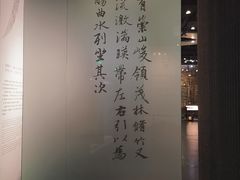 有崇山峻領茂林脩竹又
流激湍暎帶左右引以為
觴曲水列坐其次